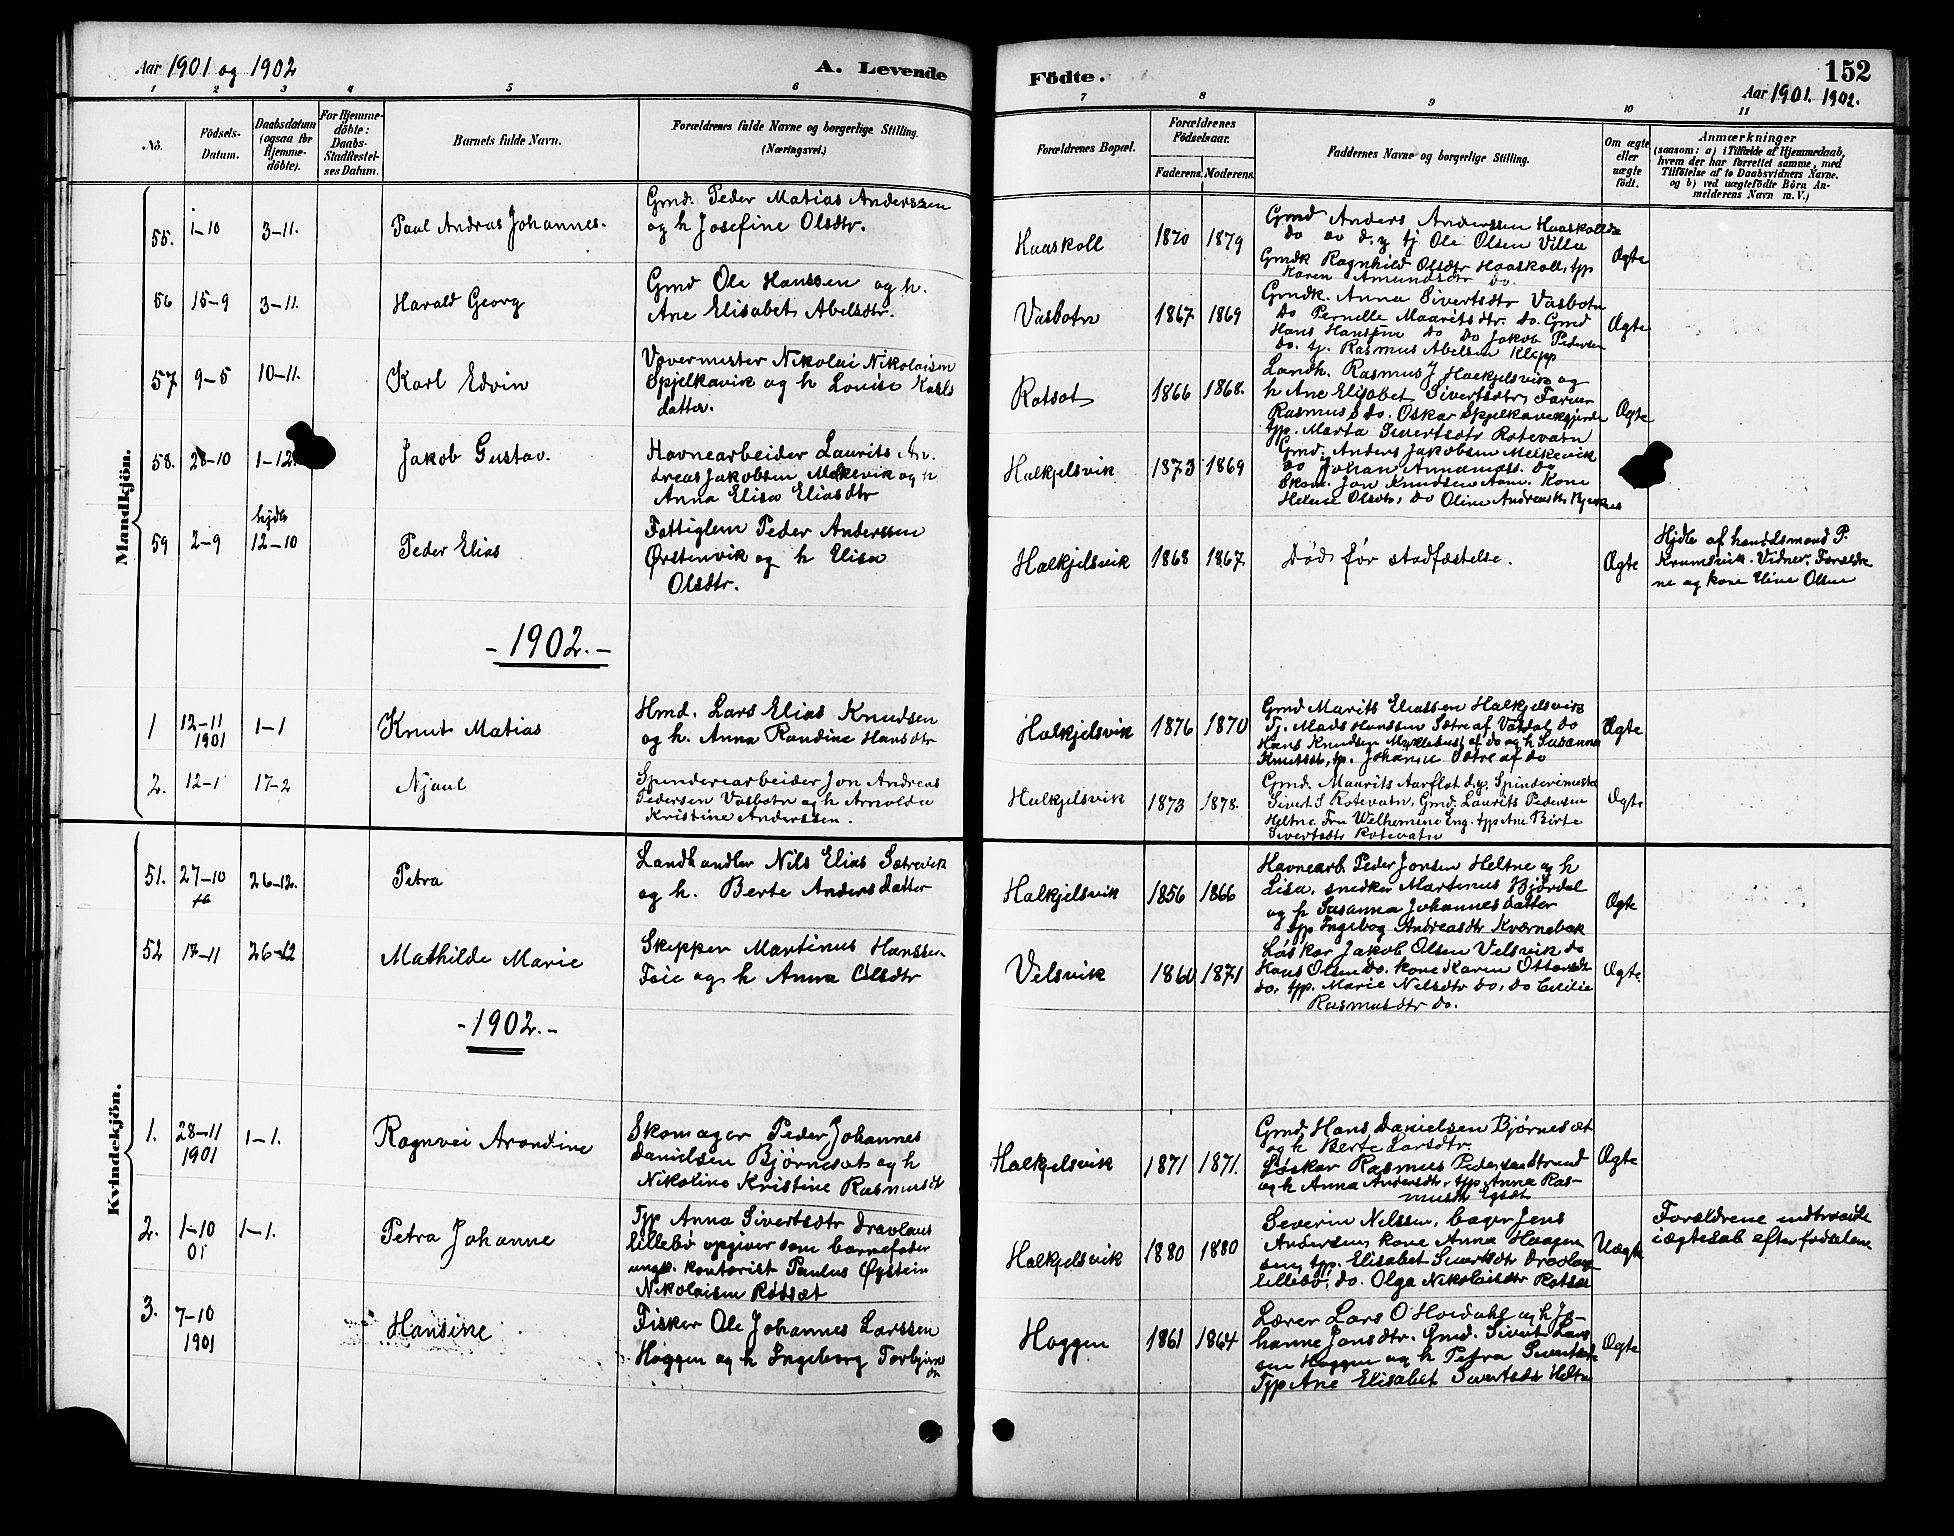 Aar 1901 og 1902
A. Levende
Födte.
152
Aar 1901. 1902.
1 2 3 4 5 6 7 8 9 10 11
No.
Födsels-
Datum.
Daabsdatum
(ogsaa for
Hjemme-
döbte).
For Hjemme-
döbte:
Daabs-
Stadfæstel-
ses Datum.
Barnets fulde Navn.
Forældrenes fulde Navne og borgerlige Stilling.
(Næringsvei.)
Forældrenes Bopæl.
Forældrenes
Födselsaar.
Faderens. Moderens.
Faddernes Navne og borgerlige Stilling.
Om ægte
eller
uægte
födt.
Anmærkninger
(saasom: a) i Tilfælde af Hjemmedaab,
hvem der har forrettet samme, med
Tilföielse af to Daabsvidners Navne.
og b) ved uægtefödte Börn An-
melderens Navn m. V.)
Mandkjön.
55. 1-10 3-11. Paul Andreas Johannes.
Gmd. Peder Matias Anderssen
og h Josefine Olsdtr.
Haaskoll 1870 1879
Gmd Anders Anderssen Haaskoll
do av d. y tj Ole Olsen Villa
Gmdk Ragnhild Olsdtr Haaskoll, typ
Karen Amundsdtr do.
Ægte
56 15-9 3-11. Harald Georg
Gmd Ole Hanssen og h.
Ane Elisabet Abelsdtr.
Vasbotn 1867 1869
Gmdk. Anna Sivertsdtr Vasbotn
do Pernelle Mauritsdtr. do. Gmd
Hans Hanssen do do Jakob Pedersen
do. tj. Rasmus Abelsen Klepp
Ægte
57 9-5 10-11. Karl Edvin
Vævermester Nikolai Nikolaisen
Spjelkavik og h Louise Karls
datter.
Rotsæt 1866 1868.
Landh. Rasmus J Halkjelsvik og
h Ane Elisabet Sivertsdtr, Farver
Rasmus S do. Oskar Spjelkavikgjerde
typ. Marta Sivertsdtr Rotevatn
Ægte
58. 28-10 1-12. Jakob Gustav.
Havnearbeider Laurits An-
dreas Jakobsen Melkevik og h
Anna Elisa Eliasdtr
Halkjelsvik 1873 1869
Gmd. Anders Jakobsen Melkevik
do Johan Annaniass. do
Skom. Jon Knudsen Aam. Kone
Helene Olsdtr, do Oline Andreasdtr
59 2-9 hjdb 12-10 Peder Elias
Fattiglem Peder Anderssen
Ørstenvik og h Elisa
Olsdtr.
Halkjelsvik 1868 1867
Død før stadfæstelse.
Ægte
Hjdb af handelsmand P.
Krumsvik. Vidner, Forældre
ne og kone Oline Olsen
- 1902. -
1 12-11 1901 1-1 Knut Matias
Hmd. Lars Elias Knudsen
og h. Anna Randine Hansdtr
Halkjelsvik 1876 1870
Gmd Marits Eliassen Halkjelsvik
Tj. Mads Hanssen Sætre af Vardal do
Hans Knudsen Myklebust af do og h Susanna
Knutsdtr, tp. Johanne Sætre af do
Ægte
2. 12-1 17-2 Njaal
Spinderiearbeider Jon Andreas
Pedersen Vasbotn og h Arnolda
Kristine Anderssen.
Halkjelsvik 1873 1878.
Gmd. Maurits Aarflot d.y. Spinderimester
Sivert S Rotevatn, Gmd. Laurits Pedersen
Heltne Fru Welhemine Eng. typ Ane Birte
Sivertsdtr Rotevatn
Ægte
Kvindekjön.
51. 27-10 26-12. Petra
Landhandler Nils Elias Sætrevik
og h. Berte Andersdatter
Halkjelsvik 1856 1866
Havnearb. Peder Jonsen Heltne og h
Lisa, snedker Martinus Hjørdal
og h Susanna Johannesdatter
typ Ingebog Andreasdtr Kvernebak
Ægte
52 17-11 26-12 Mathilde Marie
Skipper Martinus Hanssen
Foie og h Anna Olsdtr
Velsvik 1860 1871
Løskar Jakob Olsen Velsvik do
Hans Olsen do. kone Karen Ottarsdtr
do, typ. Marie Nilsdtr do, do Cecilie
Rasmusdtr do.
Ægte
- 1902. -
1. 28-11 1901 1-1. Ragnvei Arondine
Skomager Peder Johannes
Danielsen Bjørnesæt og h
Nikoline Kristine Rasmusdt
Halkjelsvik 1871 1871.
Gmd. Hans Danielsen Bjørnesæt
og h Berte Larsdtr
Løskar Rasmus Pedersen Strand
og h Anna Andersdtr, typ Anna Ras-
musdtr Egsæt
Ægte
2. 1-10 01 1-1. Petra Johanne
Typ Anna Sivertsdtr Dravlaus
lillebø opgiver som barnefader
ungk. kontorist Paulus Øystein
Nikolaisen Rødsæt
Halkjelsvik 1880 1880
Severin Nilssen, bager Jens
Andersen, kone Anna Haagen
sen, typ. Elisabet Sivertsdtr Dravlaus
lillebø, do. Olga Nikolaisdtr Rotsæt
Uægte
Forældrene indtraadte
i ægtesab efter fødselen
3. 7-10 1901 Hansine
Fisker Ole Johannes Larssen
Hoggen og h Ingeborg Torbjørns
dtr
Hoggen 1861 1864
Lærer Lars O Hovdahl og h Jo-
hanne Jonsdtr. Gmd. Sivert Lars
sen Hoggen og h Petra Sivertsdtr
Typ Ane Elisabet Sivertsdtr Heltne
Ægte